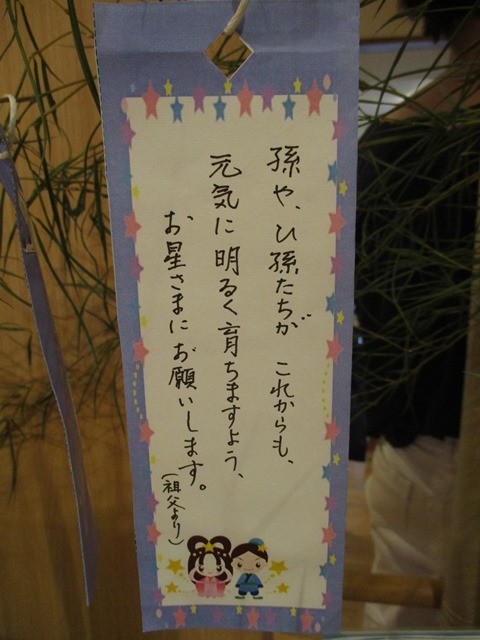 孫や、ひ孫たちが これからも、
元気に明るく育ちますよう、
お星さまにお願いします。
（祖父より）